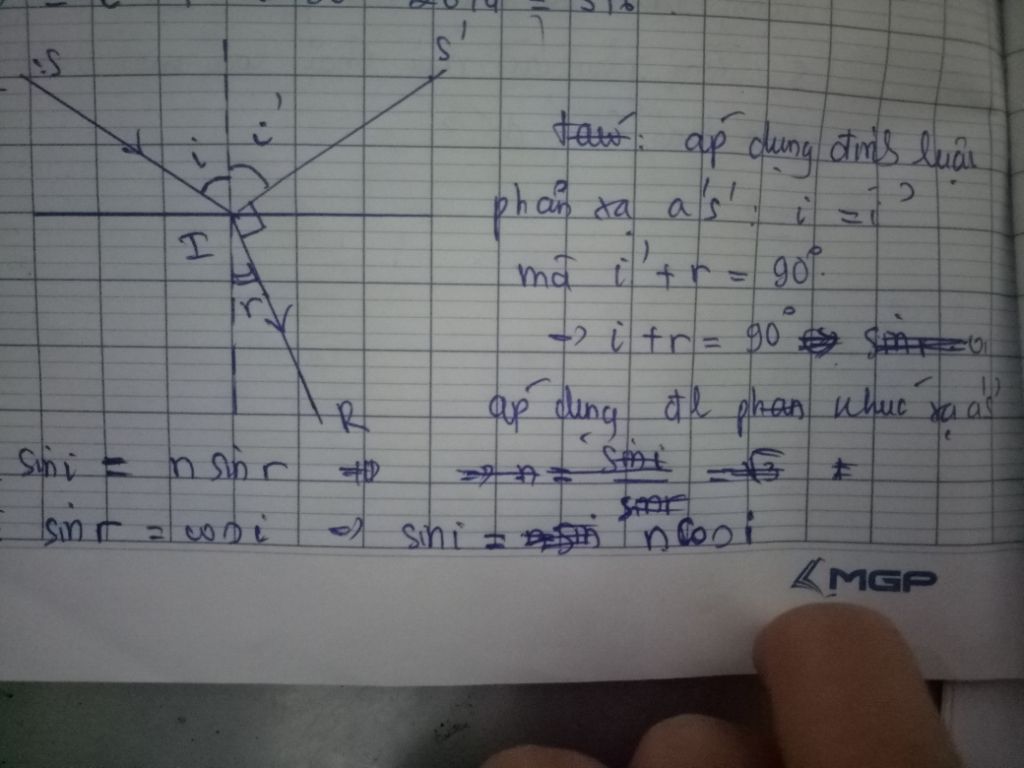 S
S'
i
i'
I
r
R
áp dụng định luật
phản xạ a's': i = i'
mà i' + r = 90°.
→ i + r = 90°
áp dụng đl khúc xạ as
sin i = n sin r
sin r = cos i => sin i = n cos i
MGP